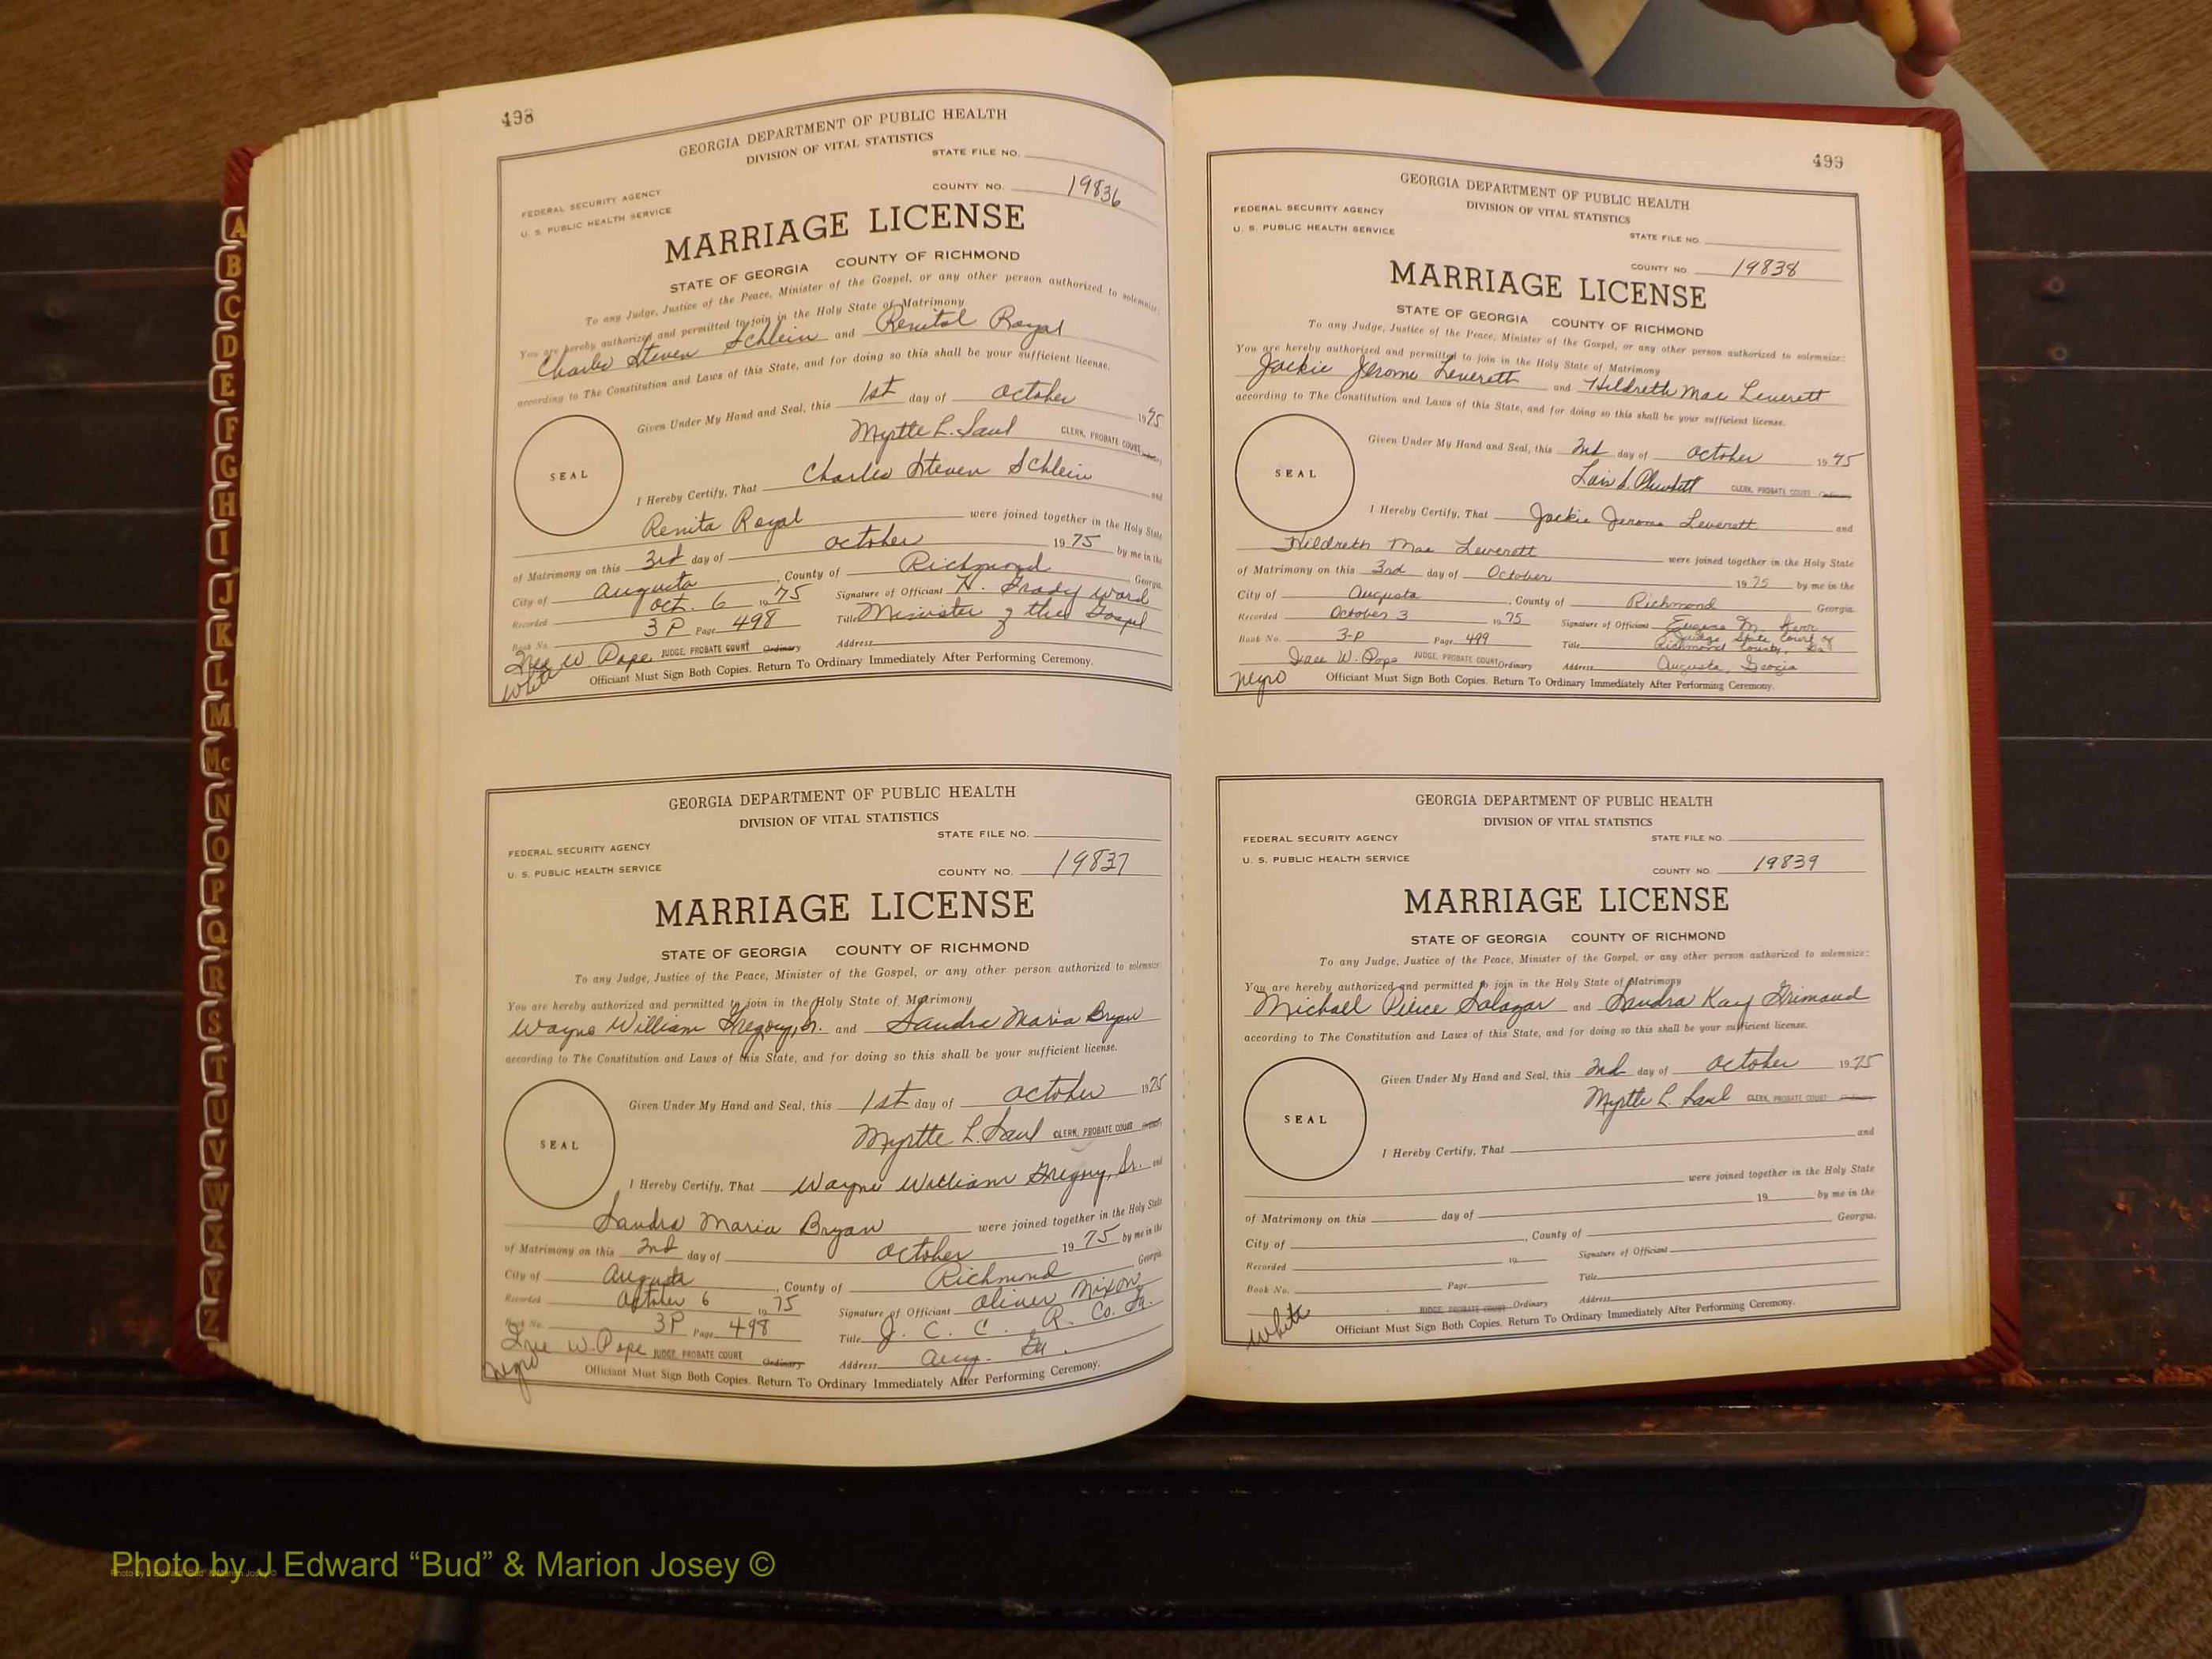 498
GEORGIA DEPARTMENT OF PUBLIC HEALTH
DIVISION OF VITAL STATISTICS
STATE FILE NO.
FEDERAL SECURITY AGENCY
COUNTY NO. 19836
U. S. PUBLIC HEALTH SERVICE
MARRIAGE LICENSE
STATE OF GEORGIA COUNTY OF RICHMOND
To any Judge, Justice of the Peace, Minister of the Gospel, or any other person authorized to solemnize:
You are hereby authorized and permitted to join in the Holy State of Matrimony
Charles Steven Schlein and Renital Royal
according to The Constitution and Laws of this State, and for doing so this shall be your sufficient license.
Given Under My Hand and Seal, this 1st day of October 1975
Myrtle L. Saul CLERK, PROBATE COURT
SEAL
I Hereby Certify, That Charles Steven Schlein and
Renita Royal were joined together in the Holy State
of Matrimony on this 3rd day of October 1975 by me in the
City of Augusta, County of Richmond Georgia.
Recorded Oct. 6 1975 Signature of Officiant H. Grady Ward
Book No. 3 P Page 498 Title Minister of the Gospel
W. Pope JUDGE, PROBATE COURT Ordinary Address
white Officiant Must Sign Both Copies. Return To Ordinary Immediately After Performing Ceremony.
GEORGIA DEPARTMENT OF PUBLIC HEALTH
DIVISION OF VITAL STATISTICS
STATE FILE NO.
FEDERAL SECURITY AGENCY
U. S. PUBLIC HEALTH SERVICE COUNTY NO. 19837
MARRIAGE LICENSE
STATE OF GEORGIA COUNTY OF RICHMOND
To any Judge, Justice of the Peace, Minister of the Gospel, or any other person authorized to solemnize:
You are hereby authorized and permitted to join in the Holy State of Matrimony
Wayne William Gregory, Sr. and Sandra Maria Bryan
according to The Constitution and Laws of this State, and for doing so this shall be your sufficient license.
Given Under My Hand and Seal, this 1st day of October 1975
Myrtle L. Saul CLERK, PROBATE COURT
SEAL
I Hereby Certify, That Wayne William Gregory, Sr. and
Sandra Maria Bryan were joined together in the Holy State
of Matrimony on this 2nd day of October 1975 by me in the
City of Augusta, County of Richmond Georgia
Recorded October 6 1975 Signature of Officiant Oliver Mixon
Book No. 3P Page 498 Title J. C. C. R. Co. Ga.
W. Pope JUDGE, PROBATE COURT Ordinary Address Aug. Ga.
negro Officiant Must Sign Both Copies. Return To Ordinary Immediately After Performing Ceremony.
499
GEORGIA DEPARTMENT OF PUBLIC HEALTH
DIVISION OF VITAL STATISTICS
FEDERAL SECURITY AGENCY
U. S. PUBLIC HEALTH SERVICE STATE FILE NO.
COUNTY NO. 19838
MARRIAGE LICENSE
STATE OF GEORGIA COUNTY OF RICHMOND
To any Judge, Justice of the Peace, Minister of the Gospel, or any other person authorized to solemnize:
You are hereby authorized and permitted to join in the Holy State of Matrimony
Jackie Jerome Leverett and Hildreth Mae Leverett
according to The Constitution and Laws of this State, and for doing so this shall be your sufficient license.
Given Under My Hand and Seal, this 2nd day of October 1975
CLERK, PROBATE COURT Ordinary
SEAL
I Hereby Certify, That Jackie Jerome Leverett and
Hildreth Mae Leverett were joined together in the Holy State
of Matrimony on this 3rd day of October 1975 by me in the
City of Augusta, County of Richmond Georgia.
Recorded October 3 1975 Signature of Officiant Eugene M. Kerr
Book No. 3-P Page 499 Title Judge, State Court of
Richmond County, Ga
W. Pope JUDGE, PROBATE COURT Ordinary Address Augusta, Georgia
negro Officiant Must Sign Both Copies. Return To Ordinary Immediately After Performing Ceremony.
GEORGIA DEPARTMENT OF PUBLIC HEALTH
DIVISION OF VITAL STATISTICS
FEDERAL SECURITY AGENCY STATE FILE NO.
U. S. PUBLIC HEALTH SERVICE
COUNTY NO. 19839
MARRIAGE LICENSE
STATE OF GEORGIA COUNTY OF RICHMOND
To any Judge, Justice of the Peace, Minister of the Gospel, or any other person authorized to solemnize:
You are hereby authorized and permitted to join in the Holy State of Matrimony
Michael Pierce Salazar and Sandra Kay Grimaud
according to The Constitution and Laws of this State, and for doing so this shall be your sufficient license.
Given Under My Hand and Seal, this 2nd day of October 1975
Myrtle L. Saul CLERK, PROBATE COURT Ordinary
SEAL
I Hereby Certify, That and
were joined together in the Holy State
of Matrimony on this day of 19 by me in the
City of , County of Georgia.
Recorded 19 Signature of Officiant
Book No. Page Title
JUDGE, PROBATE COURT Ordinary Address
white Officiant Must Sign Both Copies. Return To Ordinary Immediately After Performing Ceremony.
A
B
C
D
E
F
G
H
I
J
K
L
M
Mc
N
O
P
Q
R
S
T
U
V
W
X
Y
Z
Photo by J Edward “Bud” & Marion Josey ©
Photo by J Edward "Bud" & Marion Josey ©